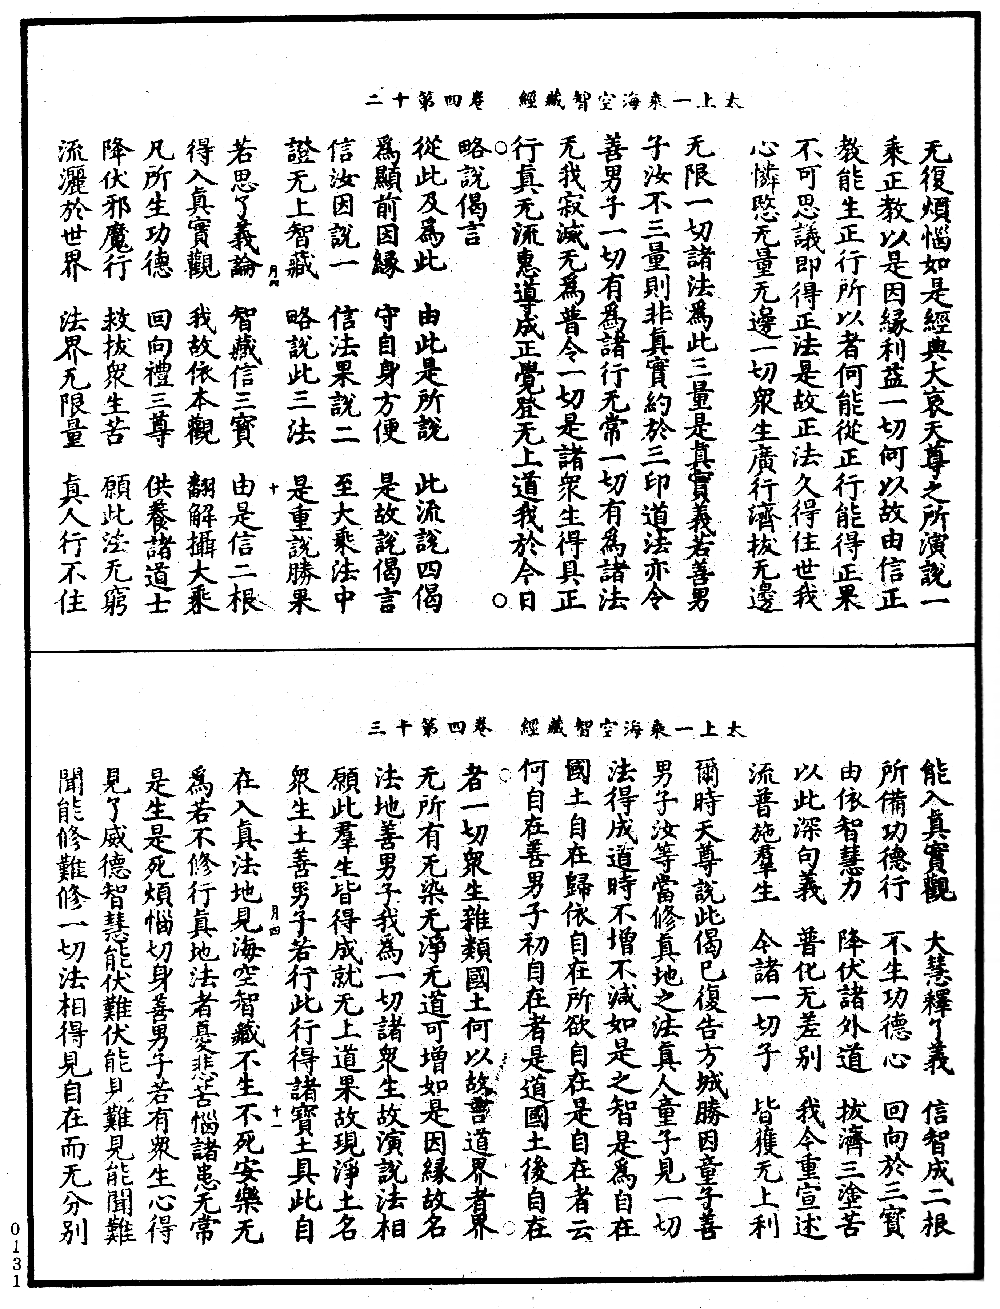 太上一乘海空智藏經　卷四第十二
无復煩惱如是經典大哀天尊之所演說一
乘正教以是因緣利益一切何以故由信正
教能生正行所以者何能從正行能得正果
不可思議即得正法是故正法久得住世我
心憐愍无量无邊一切衆生廣行濟拔无邊
无限一切諸法爲此三量是真實義若善男
子汝不三量則非真實約於三印道法亦令
善男子一切有爲諸行无常一切有爲諸法
无我寂滅无爲普令一切是諸衆生得具正
行真无流惠導成正覺登无上道我於今日
略說偈言
從此及爲此　由此是所說　此流說四偈
爲顯前因緣　守自身方便　是故說偈言
信汝因說一　信法果說二　至大乘法中
證无上智藏　略說此三法　是重說勝果
月四　十
若思了義論　智藏信三寶　由是信二根
得入真實觀　我故依本觀　翻解攝大乘
凡所生功德　回向禮三尊　供養諸道士
降伏邪魔行　救拔衆生苦　願此法无窮
流灑於世界　法界无限量　真人行不住
太上一乘海空智藏經　卷四第十三
能入真實觀　大慧釋了義　信智成二根
所備功德行　不生功德心　回向於三寶
由依智慧力　降伏諸外道　拔濟三塗苦
以此深句義　普化无差別　我今重宣述
流普施羣生　令諸一切子　皆獲无上利
爾時天尊說此偈已復告方城勝因童子善
男子汝等當修真地之法真人童子見一切
法得成道時不增不減如是之智是爲自在
國土自在歸依自在所欲自在是自在者云
何自在善男子初自在者是道國土後自在
者一切衆生雜類國土何以故善道界者界
无所有无染无淨无道可增如是因緣故名
法地善男子我爲一切諸衆生故演說法相
願此羣生皆得成就无上道果故現淨土名
衆生土善男子若行此行得諸寶土具此自
月四　十一
在入真法地見海空智藏不生不死安樂无
爲若不修行真地法者憂悲苦惱諸患无常
是生是死煩惱切身善男子若有衆生心得
見了威德智慧能伏難伏能見難見能聞難
聞能修難修一切法相得見自在而无分別
0131